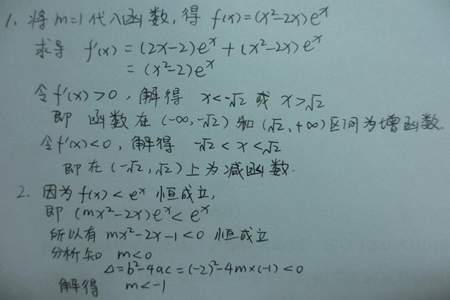 1. 将 m=1 代入函数, 得 f(x)=(x²-2x)eˣ
求导 f'(x) = (2x-2)eˣ + (x²-2x)eˣ
= (x²-2)eˣ
令 f'(x)>0, 解得 x<-√2 或 x>√2
即 函数在 (-∞,-√2) 和 (√2,+∞) 区间为增函数.
令 f'(x)<0, 解得 -√2<x<√2
即在 (-√2,√2) 上为减函数.
2. 因为 f(x)<eˣ 恒成立,
即 (mx²-2x)eˣ<eˣ
所以有 mx²-2x-1<0 恒成立
分析知 m<0
Δ=b²-4ac=(-2)²-4m×(-1)<0
解得 m<-1